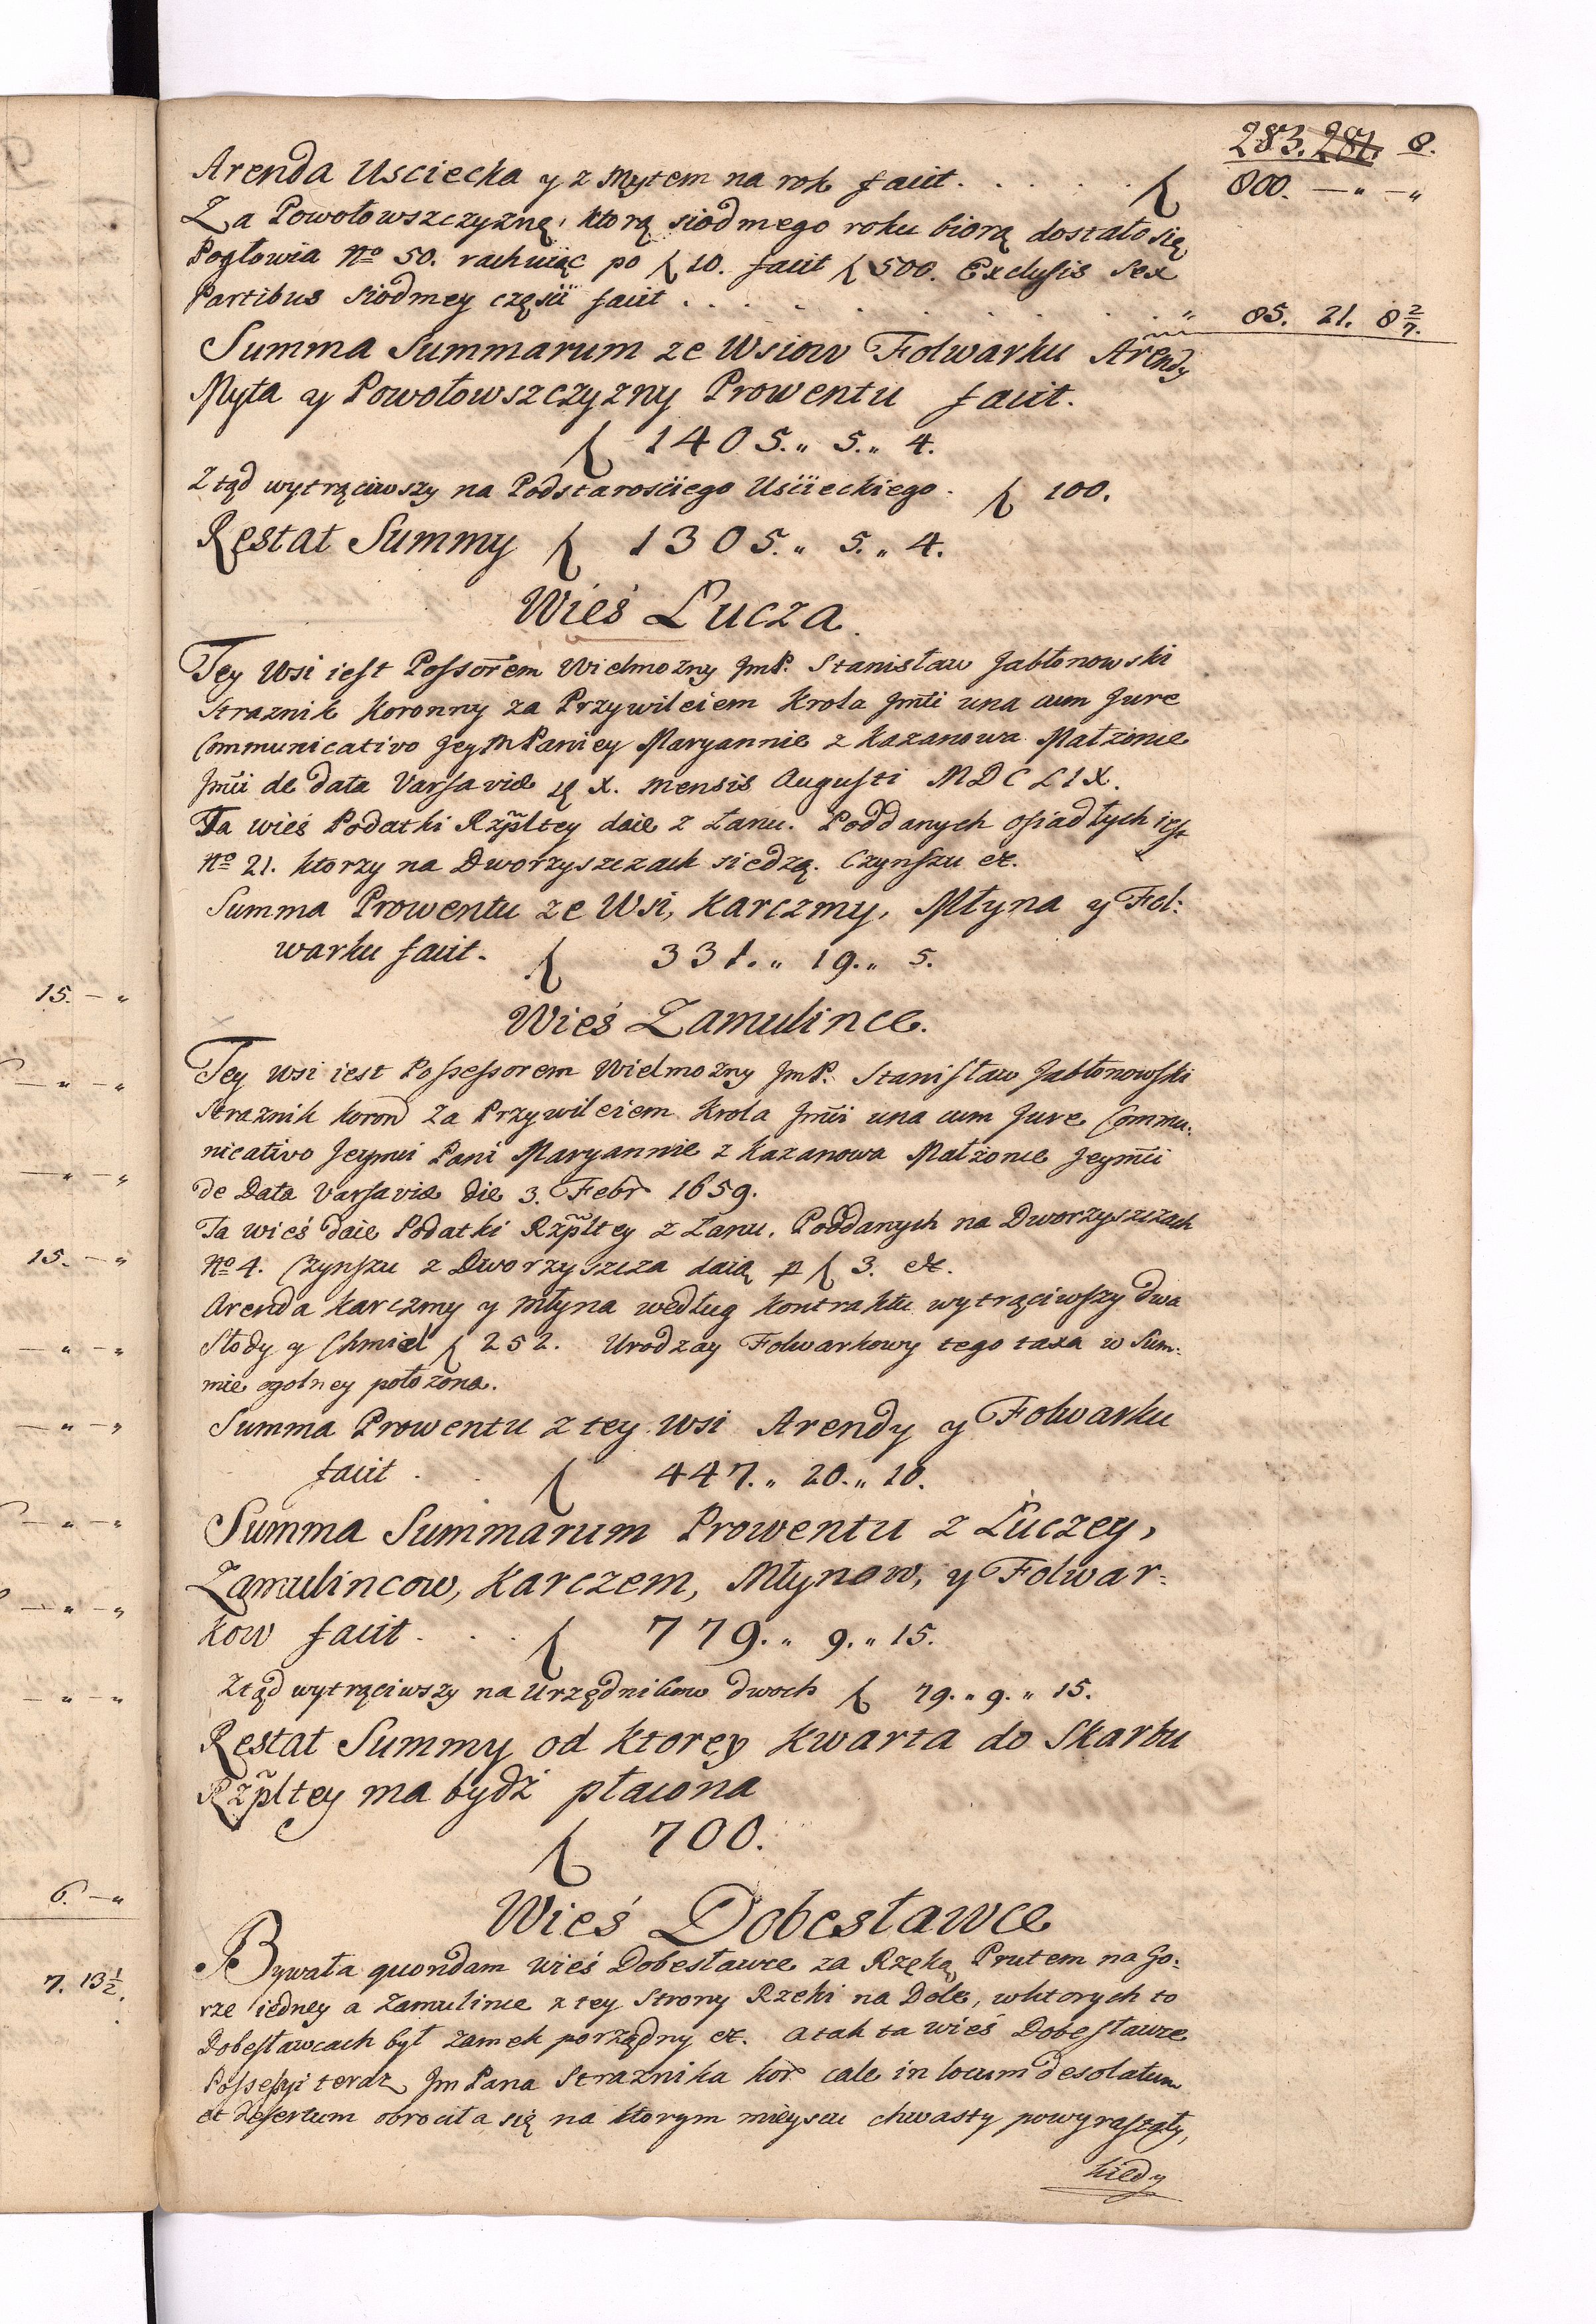 283. 281. 8.
Arenda Usciecka y z Mytem na rok facit . . . . . . ƒ 800. — " — "
Za Powołowszczyznę, ktorą siodmego roku biorą dostało się
Pogłowia No 50. rachuiąc po ƒ 10. facit ƒ 500. Exclusis Sex
Partibus siodmey częsci facit . . . . . . . . " 85. 21. 8 2/7.
Summa Summarum ze Wsiow Folwarku Arendy
Myta y Powołowszczyzny Prowentu facit.
ƒ 1405. " 5. " 4.
Ztąd wytrąciwszy na Podstarosciego Usciieckiego . ƒ 100.
Restat Summy ƒ 1305. " 5. " 4.
Wieś Łucza.
Tey Wsi iest Possorem Wielmozny JmP. Stanisław Jabłonowski
Straznik Koronny za Przywileiem Krola Jmci una cum Jure
Communicativo JeyMPaniey Maryannie z Kazanowa Małzonce
Jmci de data Varsaviæ X. mensis Augusti MDCLIX.
Ta wieś Podatki Rzpltey daie z Łanu. Poddanych osiadłych iest
No 21. ktorzy na Dworzyszczach siedzą. Czynszu etc.
Summa Prowentu ze Wsi, Karczmy, Młyna y Fol:
warku facit. ƒ 331. " 19. " 5.
Wieś Zamulince.
Tey wsi iest Possessorem Wielmozny JmP. Stanisław Jabłonowski
Straznik koron Za Przywileiem Krola Jmci una cum Jure Commu:
nicativo Jeymci Pani Maryannie z Kazanowa Małżonce Jeymci
de Data Varsaviæ die 3. Febr 1659.
Ta wieś daie Podatki Rzpltey z Łanu. Poddanych na Dworzyszczach
No 4. Czynszu z Dworzyszcza daią p ƒ 3. etc.
Arenda karczmy y młyna według kontraktu wytrąciwszy dwa
Słody y Chmiel ƒ 252. Urodzay Folwarkowy tego taxa w Sum:
mie ogolney połozona.
Summa Prowentu z tey wsi Arendy y Folwarku
facit . . ƒ 447. " 20. " 10.
Summa Summarum Prowentu z Łuczey,
Zamulincow, Karczem, Młynow, y Folwar:
kow facit . . . ƒ 779. " 9. " 15.
Ztąd wytrąciwszy na Urzędnikow dwoch ƒ 79. " 9. " 15.
Restat Summy od ktorey kwarta do Skarbu
Rzpltey ma bydź płacona
ƒ 700.
Wieś Dobesławce
Bywała quondam wieś Dobesławce za Rzeką Prutem na Go:
rze iedney a Zamulince z tey Strony Rzeki na Dole, wktorych to
Dobesławcach był zamek porządny etc. Atak ta wieś Dobesławce
Possessyi teraz Jm Pana Straznika kor cale in locum desolatum
et desertum obrociła się na ktorym mieyscu chwasty powyrastały,
kiedy
15. — "
— " — "
— " — "
15. — "
— " — "
— " — "
— " — "
— " — "
— " — "
6. — "
7. 13 1/2.